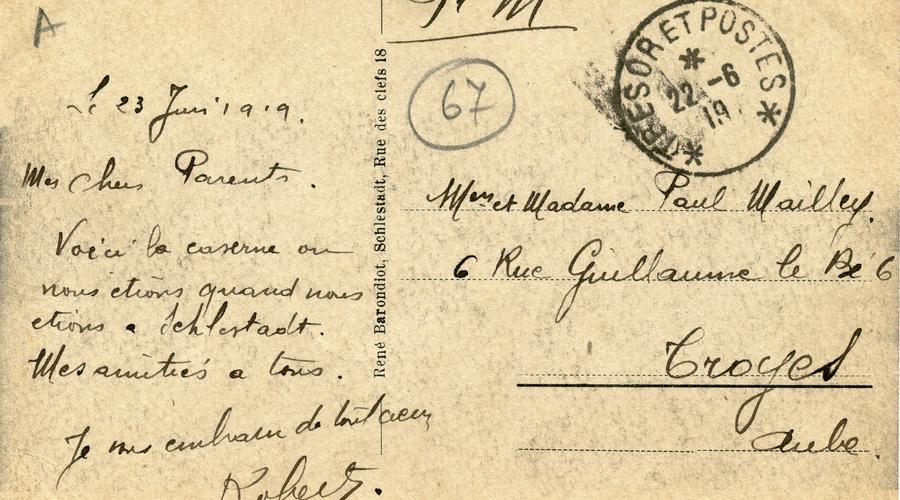 A
Le 23 Juin 1919.
Mes chers Parents.
Voici la caserne ou
nous etions quand nous
etions a Schlestadt.
Mes amitiés a tous.
Je vous embrasse de tout coeur
Robert.
René Barondiot, Schlestadt, Rue des clefs 18
67
TRESOR ET POSTES
22-6
19
et Madame Paul Mailley.
6 Rue Guillaume le Bé 6
Troyes
Aube.